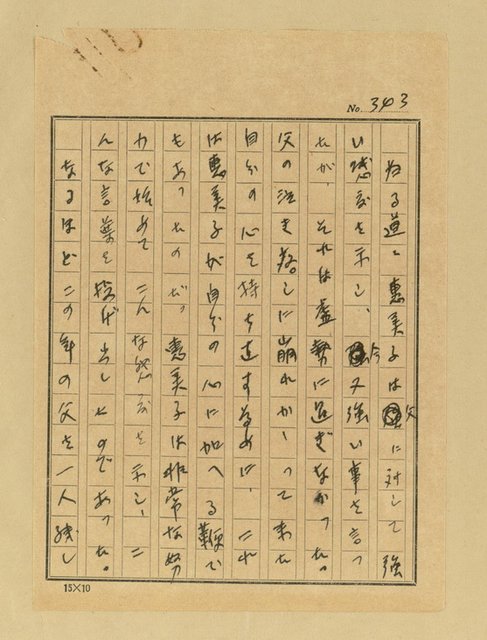 No. 343
ねる道と恵美子は父に対して強
い感度を示し、今又強い事を言っ
たが、それは虚勢に過ぎなかった。
父の泣き落しに崩れかゝって来た
自分の心を持ち直す為めに、これ
は恵美子が自分の心に加へる鞭で
もあったのだ。恵美子は非常な努
力で始めてこんな態度を示し、こ
んな言葉を投げ出したのであった。
なるほどこの年の父を一人残し
15×10